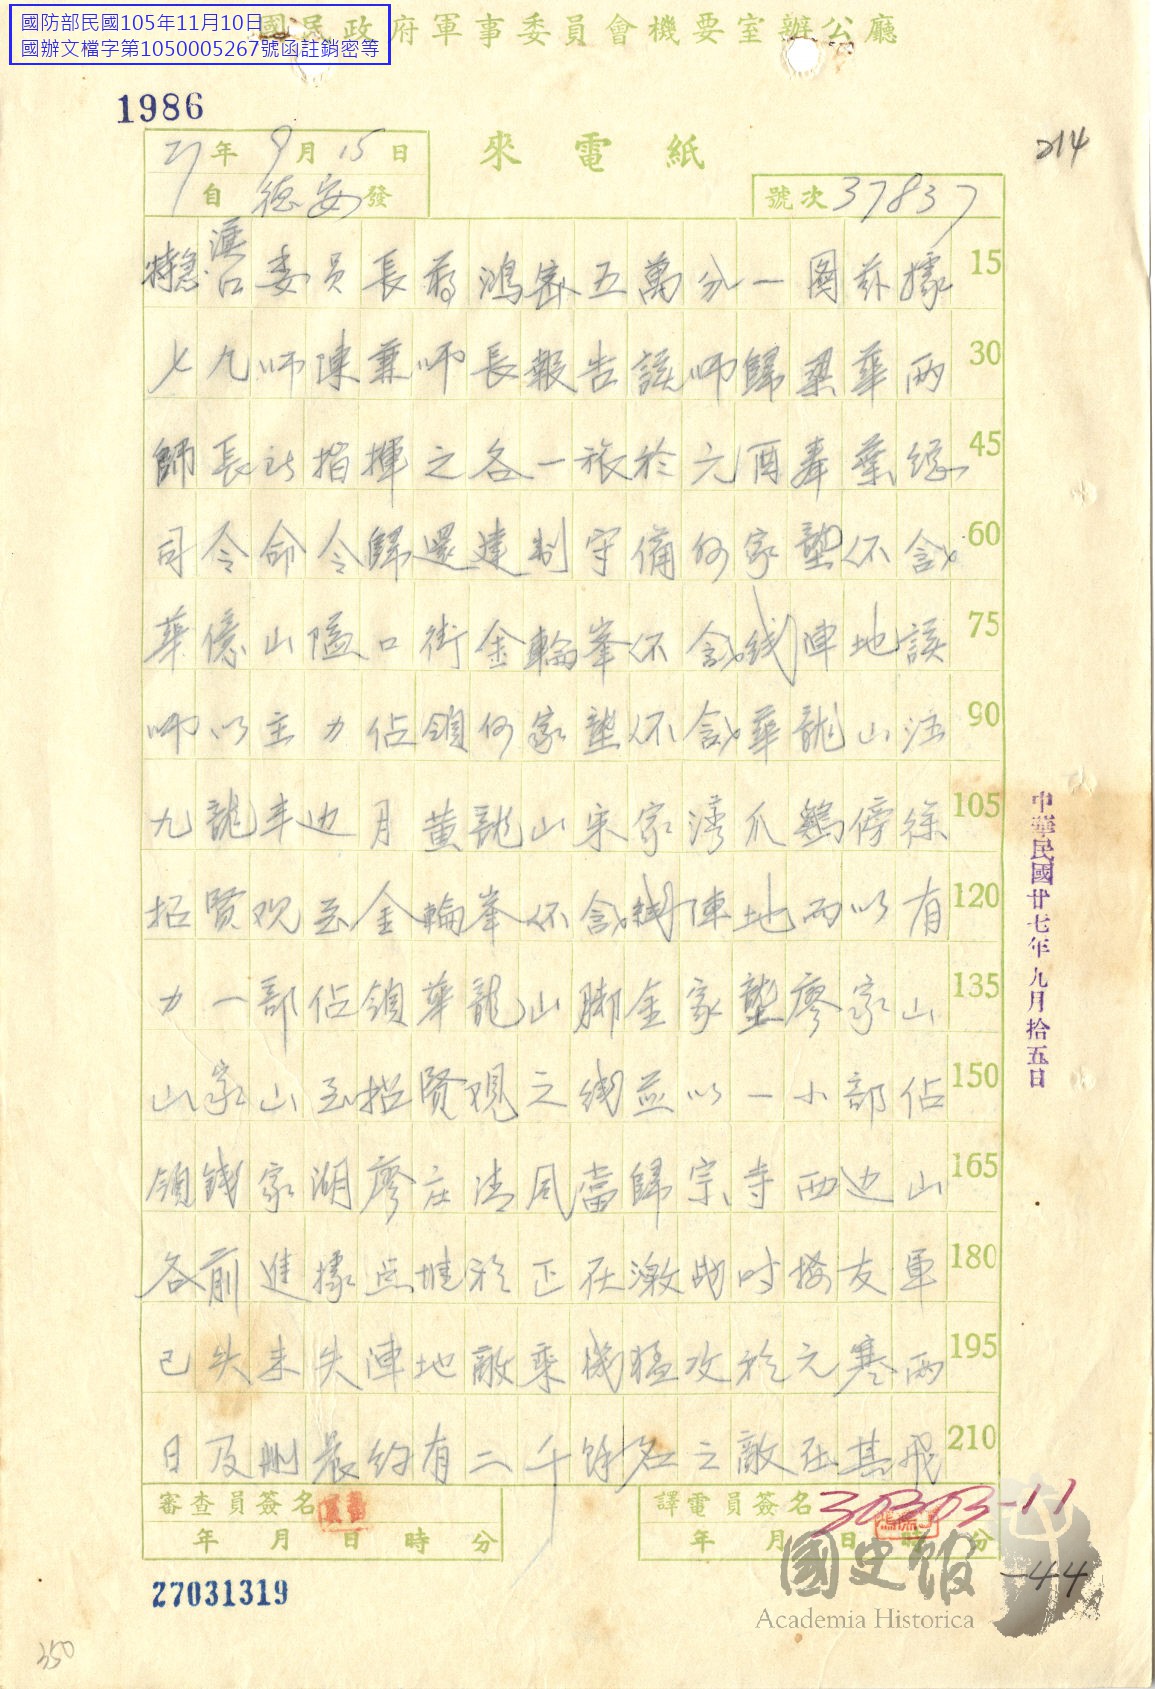 國防部民國105年11月10日
國辦文檔字第1050005267號函註銷密等
國民政府軍事委員會機要室辦公廳
1986
來電紙
214
27年9月15日
自德安發
號次37837
特急漢口委員長蔣鴻密五萬分一圖茲據 15
七九師陳兼師長報告該師歸梁華兩 30
師長所指揮之各一旅於元酉奉葉總 45
司令命令歸還建制守備何家壟不含 60
華億山隘口街金輪峯不含線陣地該 75
師以主力佔領何家壟不含華龍山注 90
九龍車邊月黃龍山宋家灣爪鷄傍徐 105
招賢观至金輪峯不含線陣地而以有 120
力一部佔領華龍山脚金家壟廖家山 135
山家山至招賢观之线並以一小部佔 150
領錢家湖廖庄清風當歸宗寺西边山 165
各前進據点惟於正在激战时接友軍 180
已失未失陣地敵乘機猛攻於元寒兩 195
日及删晨约有二千餘名之敵在其飛 210
審查員簽名
年 月 日 時 分
譯電員簽名
年 月 日 時 分
30303-11
-44
中華民國廿七年九月拾五日
27031319
國史館
Academia Historica
350